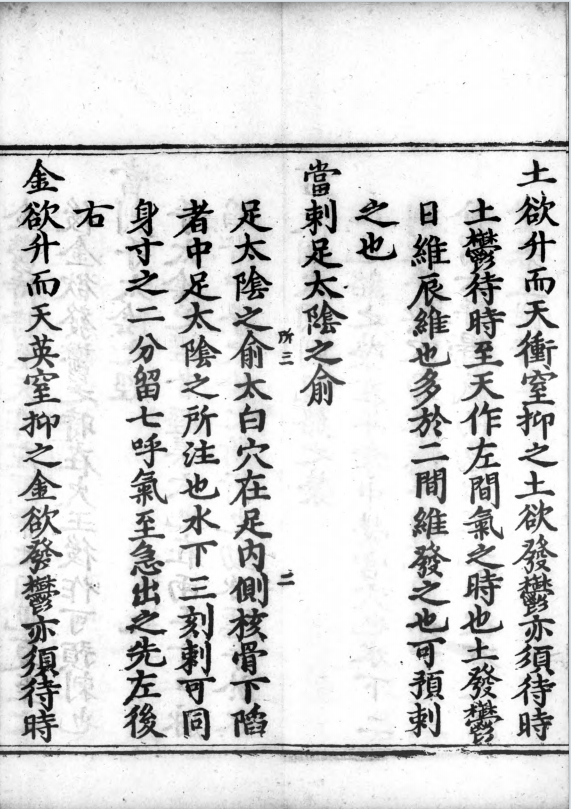 土欲升而天衝窒抑之土欲發鬱亦須待時
土鬱待時至天作左間氣之時也土發鬱
日維辰維也多於二間維發之也可預刺
之也
當刺足太陰之俞
足太陰之俞太白穴在足内側核骨下陷
者中足太陰之所注也水下三刻刺可同
身寸之二分留七呼氣至急出之先左後
右
金欲升而天英窒抑之金欲發鬱亦須待時